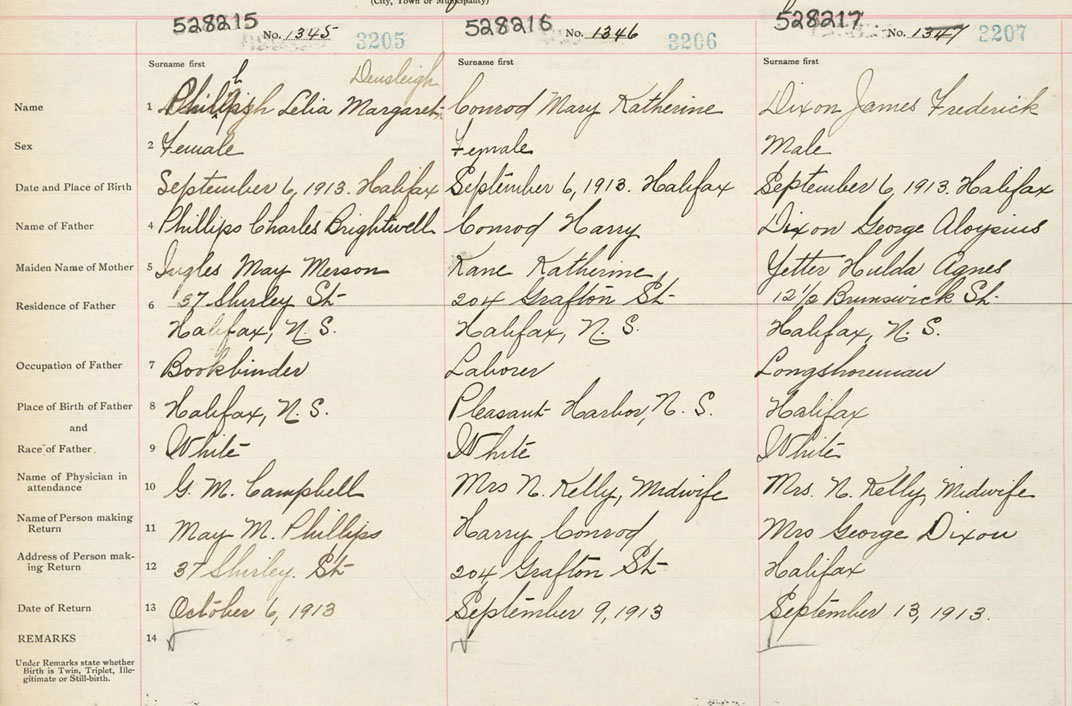 (City, Town or Municipality)
528215 No. 1345 3205
528216 No. 1346 3206
528217 No. 1347 3207
Surname first Surname first Surname first
h Densleigh
Name 1 Lelia Margaret Conrod Mary Katherine Dixon James Frederick
Sex 2 Female Female Male
Date and Place of Birth September 6, 1913. Halifax September 6, 1913. Halifax September 6, 1913. Halifax
Name of Father 4 Phillips Charles Brightwell Conrod Harry Dixon George Aloysius
Maiden Name of Mother 5 Ingles May Merson Kane Katherine Yetter Hulda Agnes
Residence of Father 6 37 Shirley St 204 Grafton St 12 1/2 Brunswick St.
Halifax, N. S. Halifax, N. S. Halifax, N. S.
Occupation of Father 7 Bookbinder Laborer Longshoreman
Place of Birth of Father 8 Halifax, N. S. Pleasant Harbor, N. S. Halifax
and
Race of Father 9 White White White
Name of Physician in
attendance 10 G. M. Campbell Mrs N. Kelly, Midwife Mrs. N. Kelly, Midwife
Name of Person making
Return 11 May M. Phillips Harry Conrod Mrs George Dixon
Address of Person mak-
ing Return 12 37 Shirley. St 204 Grafton St Halifax
Date of Return 13 October 6, 1913 September 9, 1913 September 13, 1913.
REMARKS 14
Under Remarks state whether
Birth is Twin, Triplet, Ille-
gitimate or Still-birth.